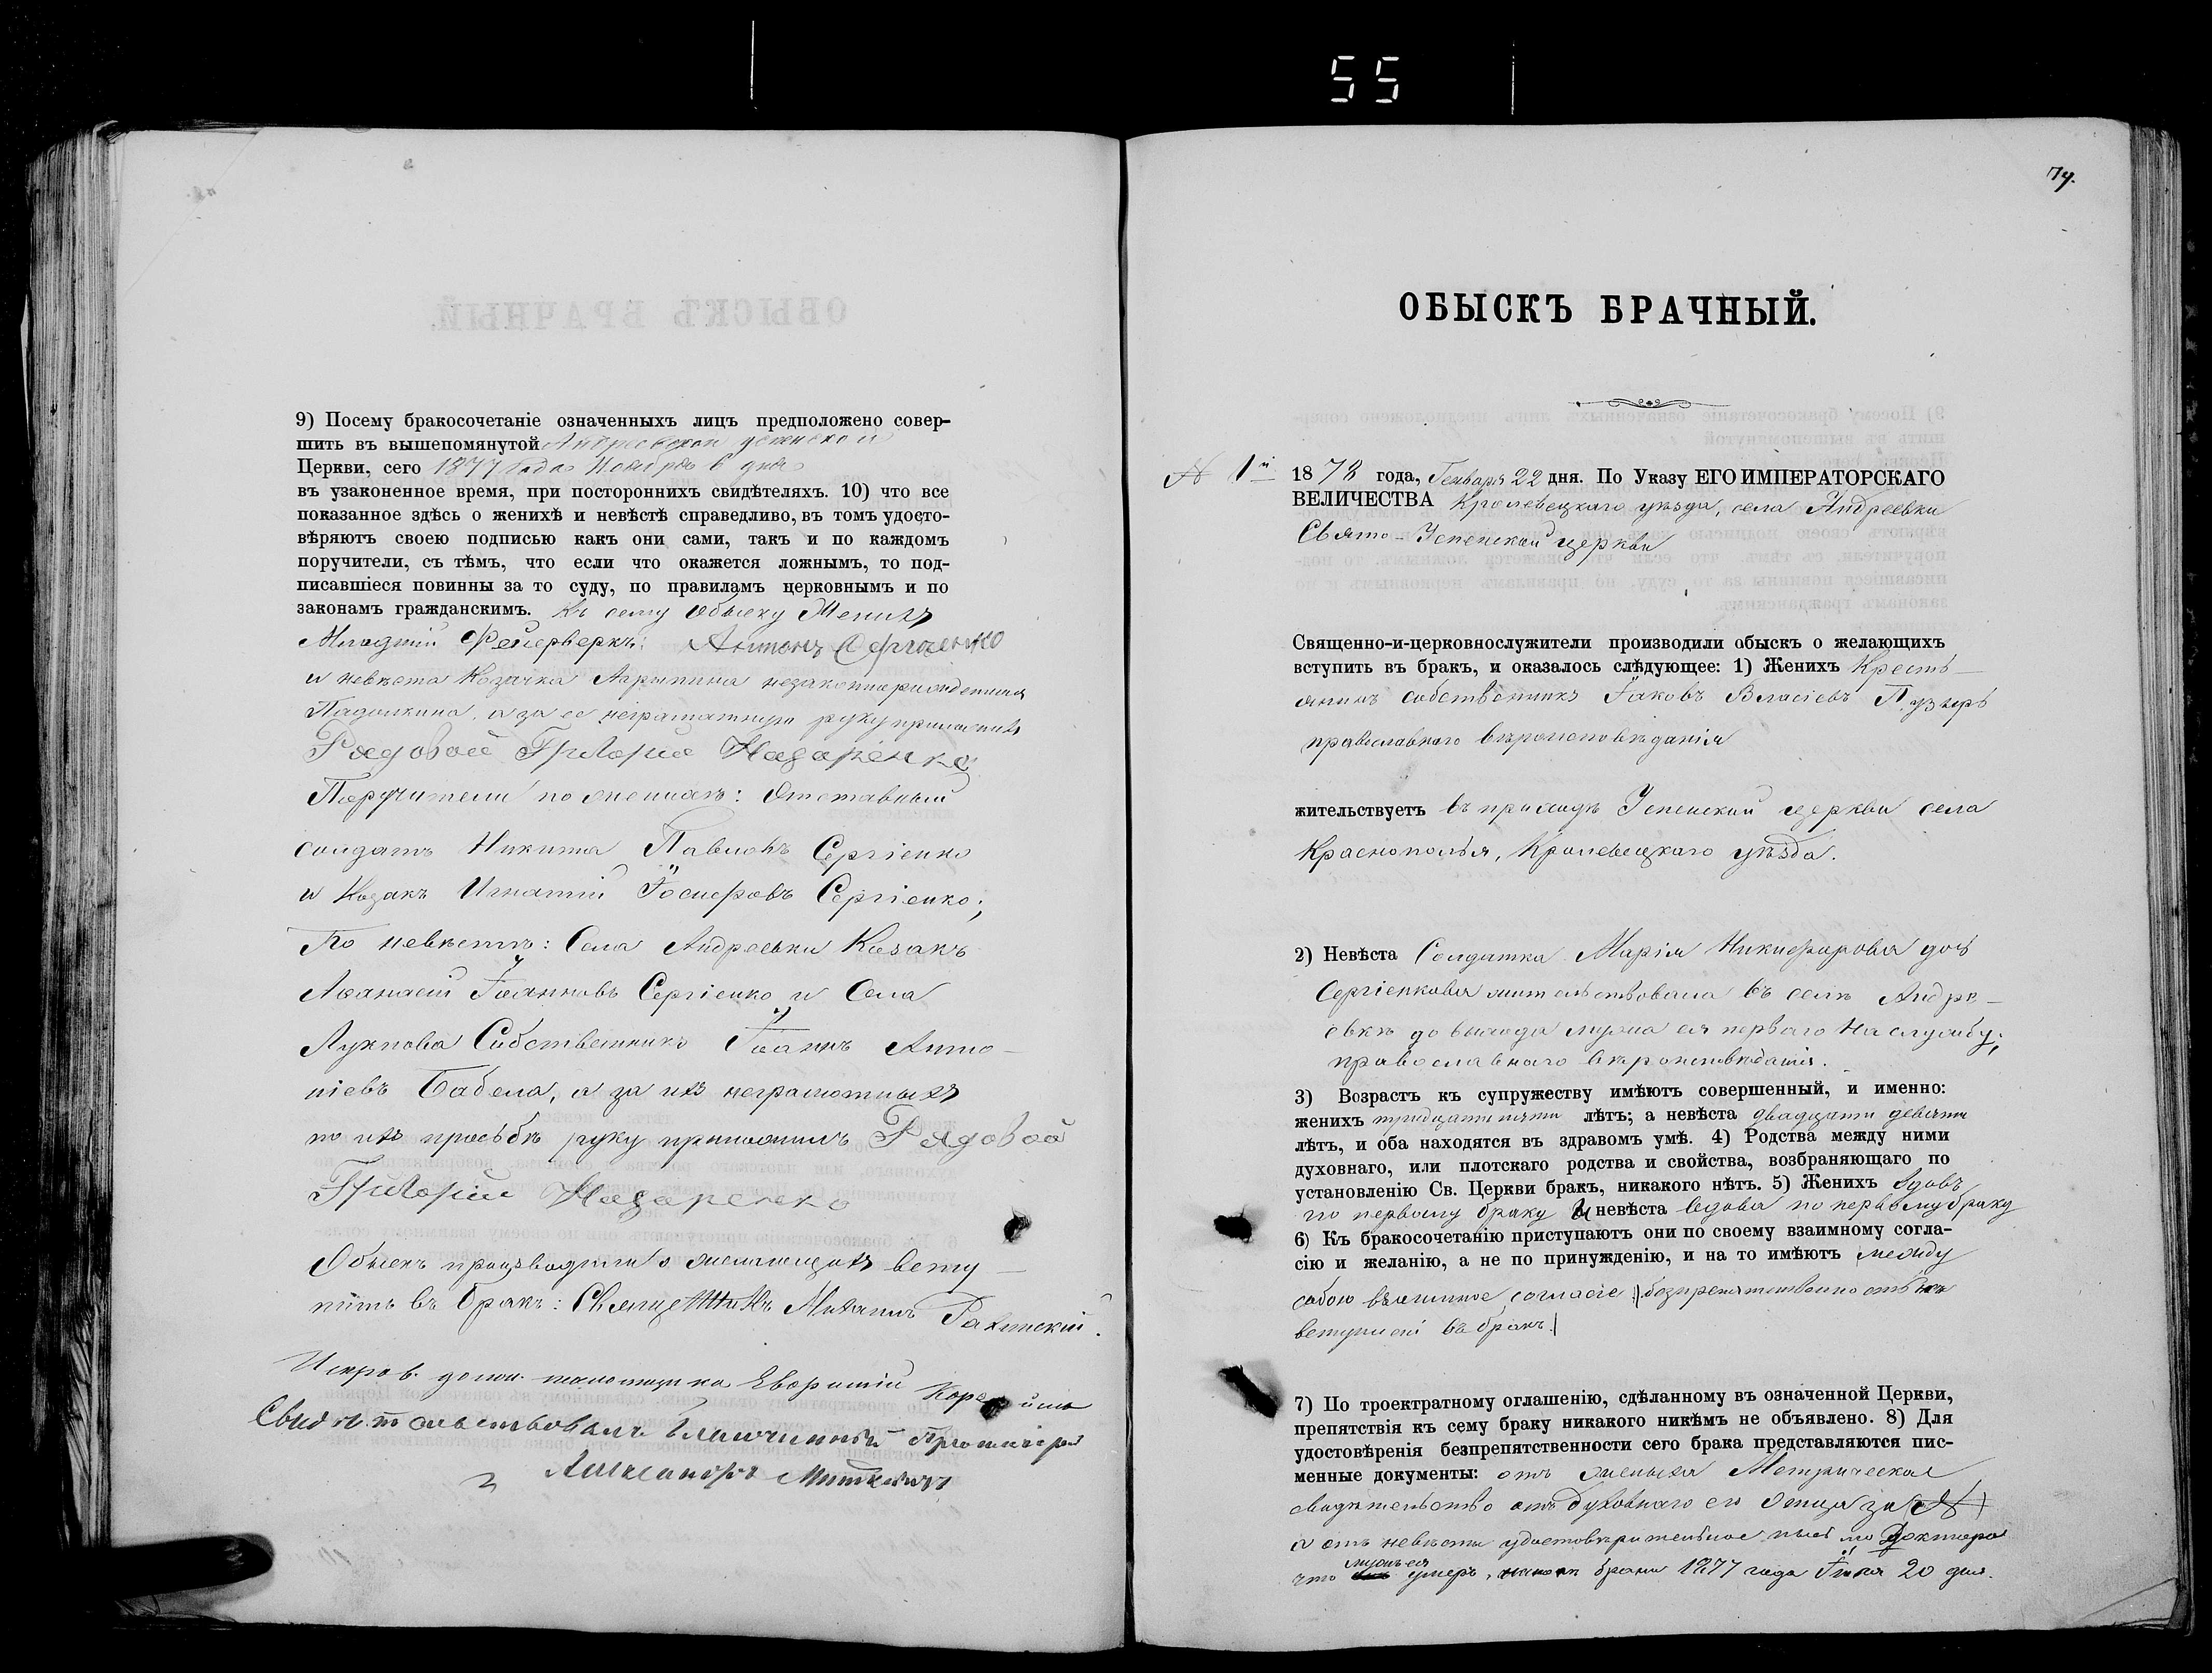 55
9) Посему бракосочетаніе означенныхъ лицъ предположено совер-
шить въ вышепомянутой Андреевской Успенской
Церкви, сего 1877 года Ноября 6 дня
въ узаконенное время, при постороннихъ свидѣтеляхъ. 10) что все
показанное здѣсь о женихѣ и невѣстѣ справедливо, въ томъ удосто-
вѣряютъ своею подписью какъ они сами, такъ и по каждомъ
поручители, съ тѣмъ, что если что окажется ложнымъ, то под-
писавшіеся повинны за то суду, по правиламъ церковнымъ и по
законамъ гражданскимъ. Къ сему обыску Женихъ
Младшій Фейерверкъ: Антонъ Сергіенко
и невѣста Козачка Агрыпина незаконнорожденная
а за ее неграматную руку приложилъ
Рядовой Григорій Назаренко
Поручители по женихѣ: Отставный
солдатъ Никита Павловъ Сергіенко
и Козакъ Игнатій Іосифовъ Сергіенко;
По невѣстѣ: Села Андреевки Козакъ
Аѳанасій Іоанновъ Сергіенко и Села
Лукнова Собственникъ Іоаннъ Анто-
ніевъ Бабела, а за ихъ неграмотныхъ
по ихъ просьбѣ руку приложилъ Рядовой
Григорій Назаренко
Обыскъ производили о желающихъ всту-
пить въ бракъ: Священникъ Михаилъ
Исправ. долж. псаломщика
Свидѣтельствовалъ Благочинный Протоіерей
Александръ
74.
ОБЫСКЪ БРАЧНЫЙ.
№ 1й
1878 года, Генваря 22 дня. По Указу ЕГО ИМПЕРАТОРСКАГО
ВЕЛИЧЕСТВА Кролевецкаго уѣзда, села Андреевки
Свято-Успенской церкви
Священно-и-церковнослужители производили обыскъ о желающихъ
вступить въ бракъ, и оказалось слѣдующее: 1) Женихъ Кресть-
янинъ собственникъ Іаковъ Власіевъ Пузыръ
православнаго вѣроисповѣданія
жительствуетъ въ приходѣ Успенской церкви села
Краснополья, Кролевецкаго уѣзда.
2) Невѣста Солдатка Марія Никифорова дочь
Сергіенкова жительствовала въ селѣ Андре-
евкѣ до выхода мужа ея перваго на службу;
православнаго вѣроисповѣданія.
3) Возрастъ къ супружеству имѣютъ совершенный, и именно:
женихъ тридцати пяти лѣтъ; а невѣста двадцати девяти
лѣтъ, и оба находятся въ здравомъ умѣ. 4) Родства между ними
духовнаго, или плотскаго родства и свойства, возбраняющаго по
установленію Св. Церкви бракъ, никакого нѣтъ. 5) Женихъ вдовъ
по первому браку и невѣста вдова по первому браку
6) Къ бракосочетанію приступаютъ они по своему взаимному согла-
сію и желанію, а не по принужденію, и на то имѣютъ между
собою взаимное согласіе безпрепятственно
вступленія въ бракъ.
7) По троектратному оглашенію, сдѣланному въ означенной Церкви,
препятствія къ сему браку никакого никѣмъ не объявлено. 8) Для
удостовѣренія безпрепятственности сего брака представляются пис-
менные документы: отъ жениха Метрическое
свидѣтельство отъ духовнаго его отца за №
а отъ невѣсты удостовѣрительное письмо Доктора
что мужъ ея умеръ, брани 1877 года Іюня 20 дня.